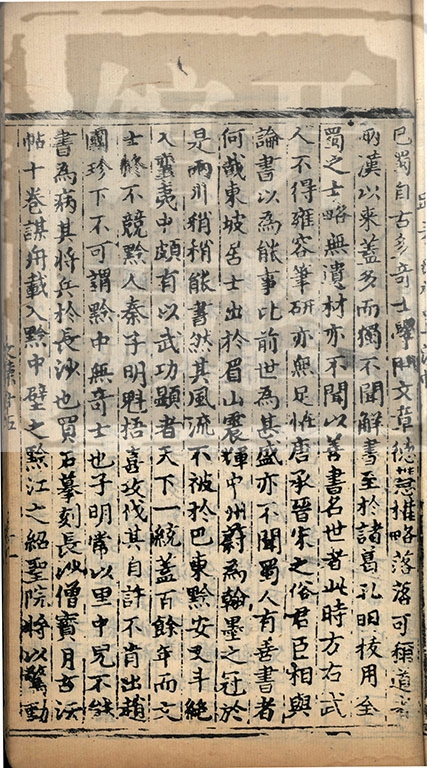 巴蜀自古多奇士學問文章德慧權略落落可稱道者
兩漢以來蓋多而獨不聞解書至於諸葛孔明拔用全
蜀之士略無遺材亦不聞以善書名世者此時方右武
人不得雍容筆研亦無足怪唐承晉宋之俗君臣相與
論書以為能事比前世為甚盛亦不聞蜀人有善書者
何哉東坡居士出於眉山震輝中州蔚為翰墨之冠於
是兩川稍稍能書然其風流不被於巴東黔安又斗絕
入蠻夷中頗有以武功顯者天下一統蓋百餘年而文
士終不競黔人秦子明魁梧喜攻伐其自許不肯出趙
國珍下不可謂黔中無奇士也子明常以里中兒不能
書為病其將兵於長沙也買石摹刻長沙僧寶月古法
帖十卷謀舟載入黔中壁之黔江之紹聖院將以驚動